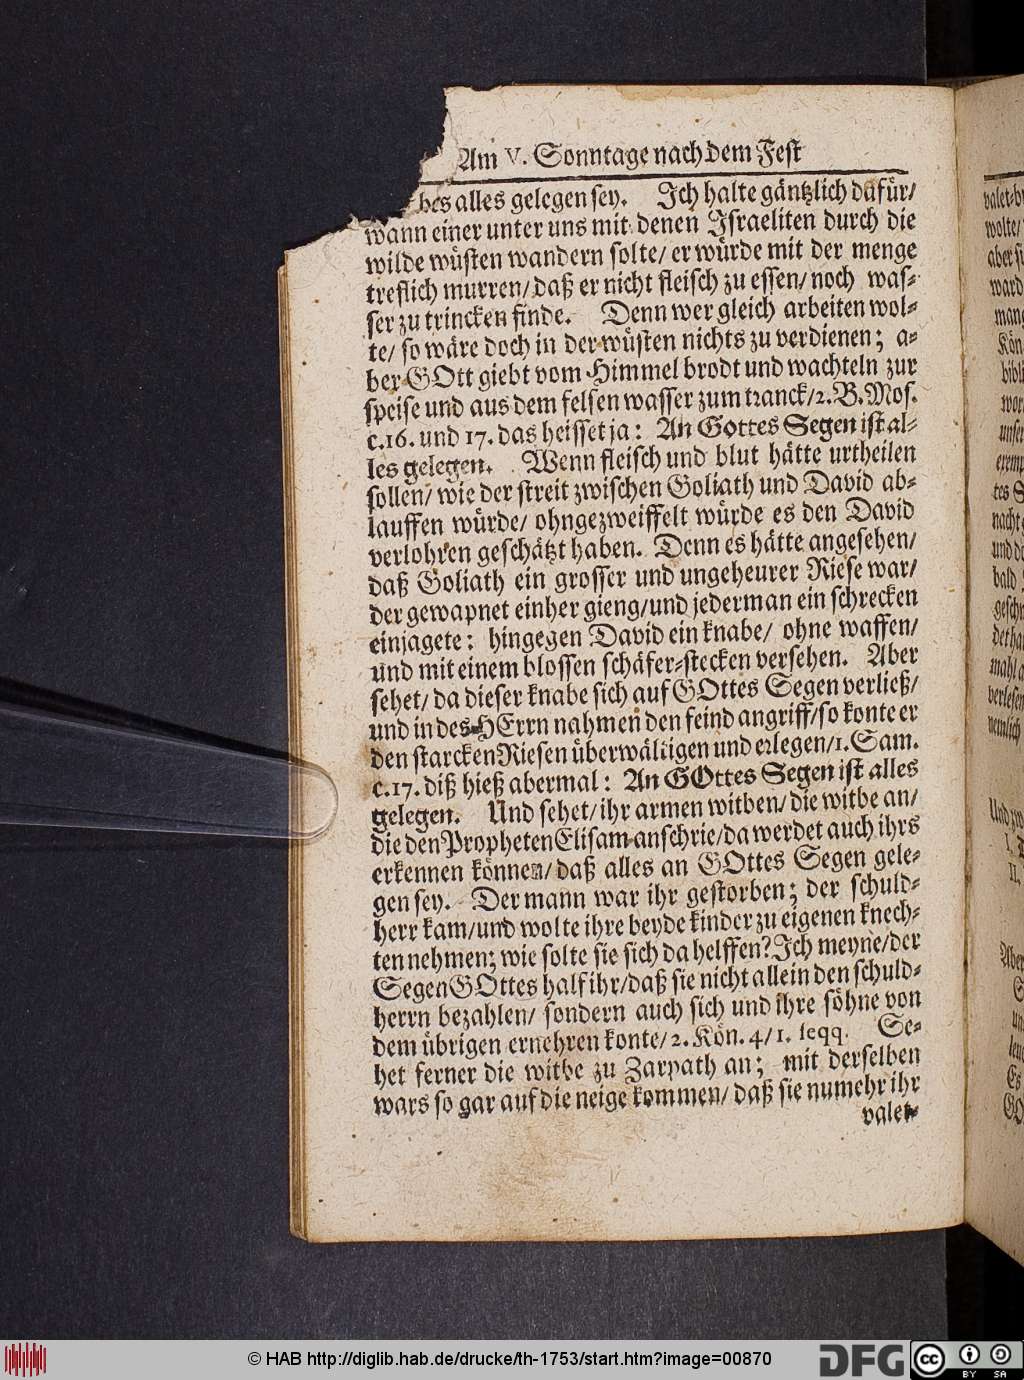 Am V. Sonntage nach dem Fest
bes alles gelegen sey. Ich halte gäntzlich dafür/
wann einer unter uns mit denen Israeliten durch die
wilde wüsten wandern solte/ er würde mit der menge
treflich murren/ daß er nicht fleisch zu essen/ noch was-
ser zu trincken finde. Denn wer gleich arbeiten wol-
te/ so wäre doch in der wüsten nichts zu verdienen; a-
ber GOtt giebt vom Himmel brodt und wachteln zur
speise und aus dem felsen wasser zum tranck/ 2. B. Mos.
c. 16. und 17. das heisset ja: An Gottes Segen ist al-
les gelegen. Wenn fleisch und blut hätte urtheilen
sollen/ wie der streit zwischen Goliath und David ab-
lauffen würde/ ohngezweiffelt würde es den David
verlohren geschätzt haben. Denn es hätte angesehen/
daß Goliath ein grosser und ungeheurer Riese war/
der gewapnet einher gieng/ und jederman ein schrecken
einjagete: hingegen David ein knabe/ ohne waffen/
und mit einem blossen schäfer-stecken versehen. Aber
sehet/ da dieser knabe sich auf GOttes Segen verließ/
und in des HErrn nahmen den feind angriff/ so konte er
den starcken Riesen überwältigen und erlegen/ 1. Sam.
c. 17. diß hieß abermal: An GOttes Segen ist alles
gelegen. Und sehet/ ihr armen witben/ die witbe an/
die den Propheten Elisam anschrie/ da werdet auch ihrs
erkennen können/ daß alles an GOttes Segen gele-
gen sey. Der mann war ihr gestorben; der schuld-
herr kam/ und wolte ihre beyde kinder zu eigenen knech-
ten nehmen; wie solte sie sich da helffen? Ich meyne/ der
Segen GOttes half ihr/ daß sie nicht allein den schuld-
herrn bezahlen/ sondern auch sich und ihre söhne von
dem übrigen ernehren konte/ 2. Kön. 4/ 1. seqq. Se-
het ferner die witbe zu Zarpath an; mit derselben
wars so gar auf die neige kommen/ daß sie numehr ihr
valet-
© HAB http://diglib.hab.de/drucke/th-1753/start.htm?image=00870
DFG
cc BY SA